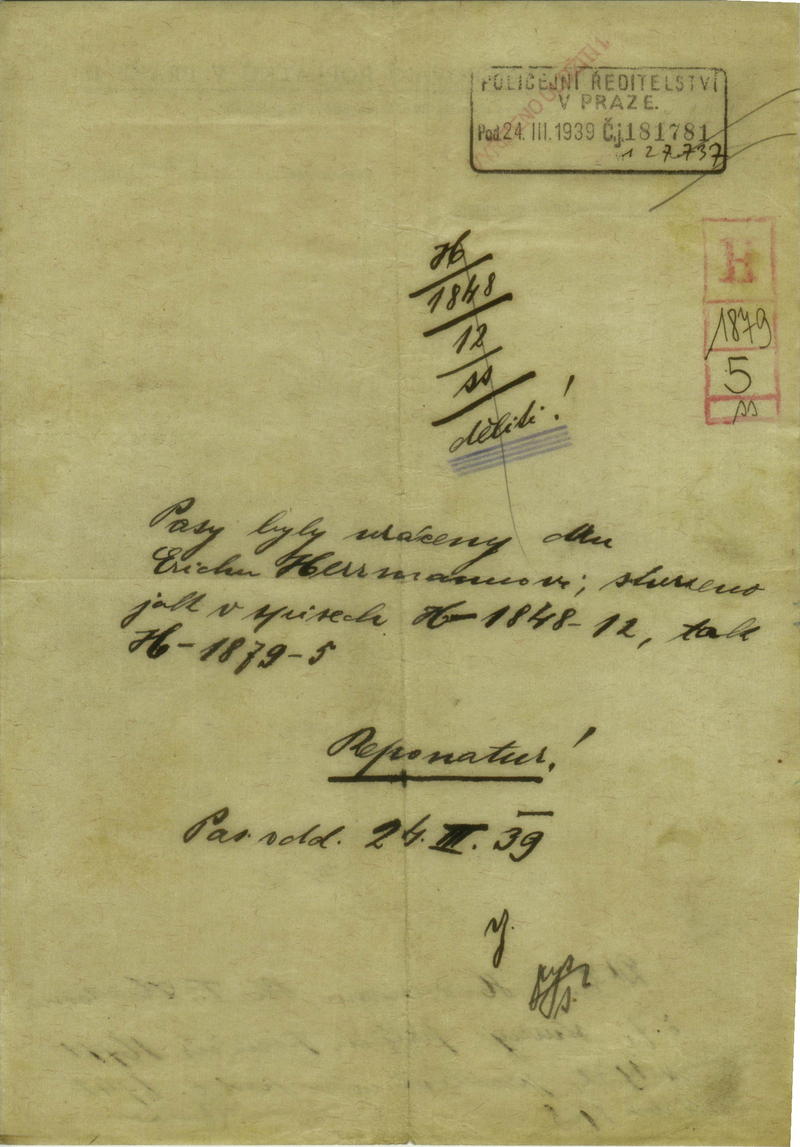 POLICEJNÍ ŘEDITELSTVÍ
V PRAZE.
Pod. 24. III. 1939 Č.j. 181781
127.737
H
1848
12
ss
děliti!
H
1879
5
ss
Pasy byly vráceny dru
Erichu Herrmannovi; stvrzeno
jak v spisech H-1848-12, tak
H-1879-5
Reponatur!
Pas. odd. 24. III. 39